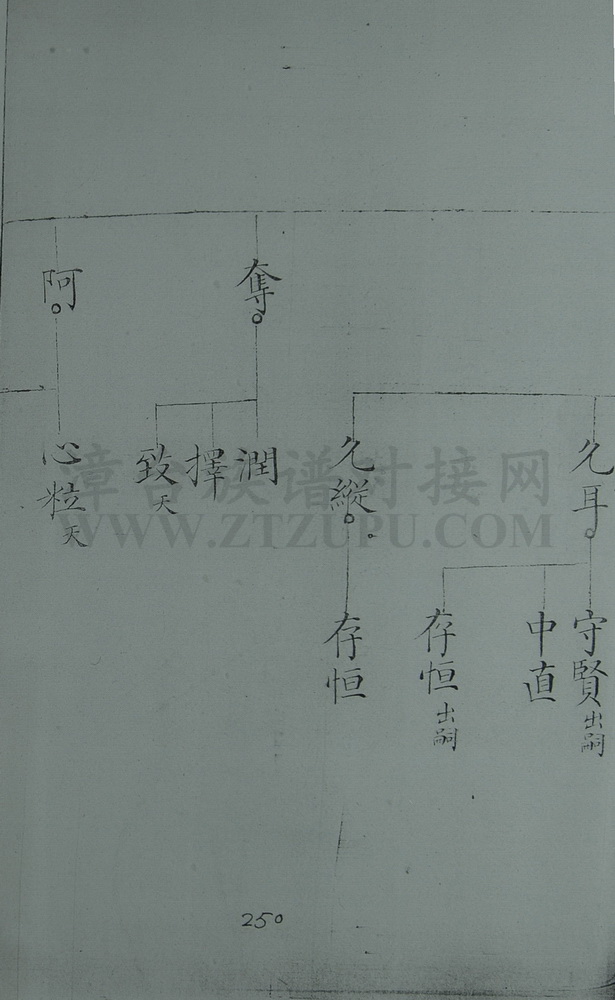 奪
阿
允耳
允縱
潤
擇
致夭
心粒夭
守賢出嗣
中直
存恒出嗣
存恒
漳台族谱对接网
WWW.ZTZUPU.COM
250